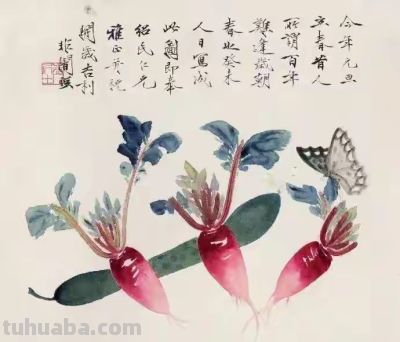 今年元旦
立春昔人
所謂百年
難逢歲朝
春也癸未
人日寫成
此圖即奉
紹民仁兄
雅正并祝
開歲吉利
非闇照
tuhuaba.com